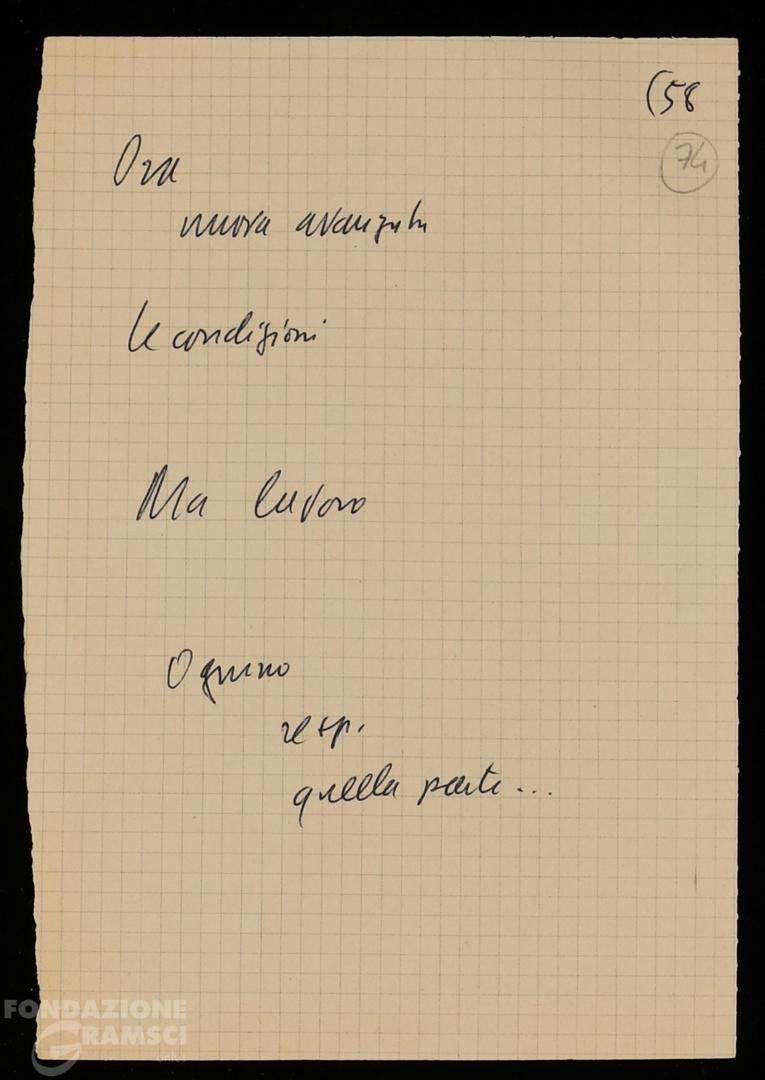 (58
74
Ora
nuova avanzata
Le condizioni
Ma lavoro
Ognuno
resp.
quella parte...
FONDAZIONE
GRAMSCI
onlus